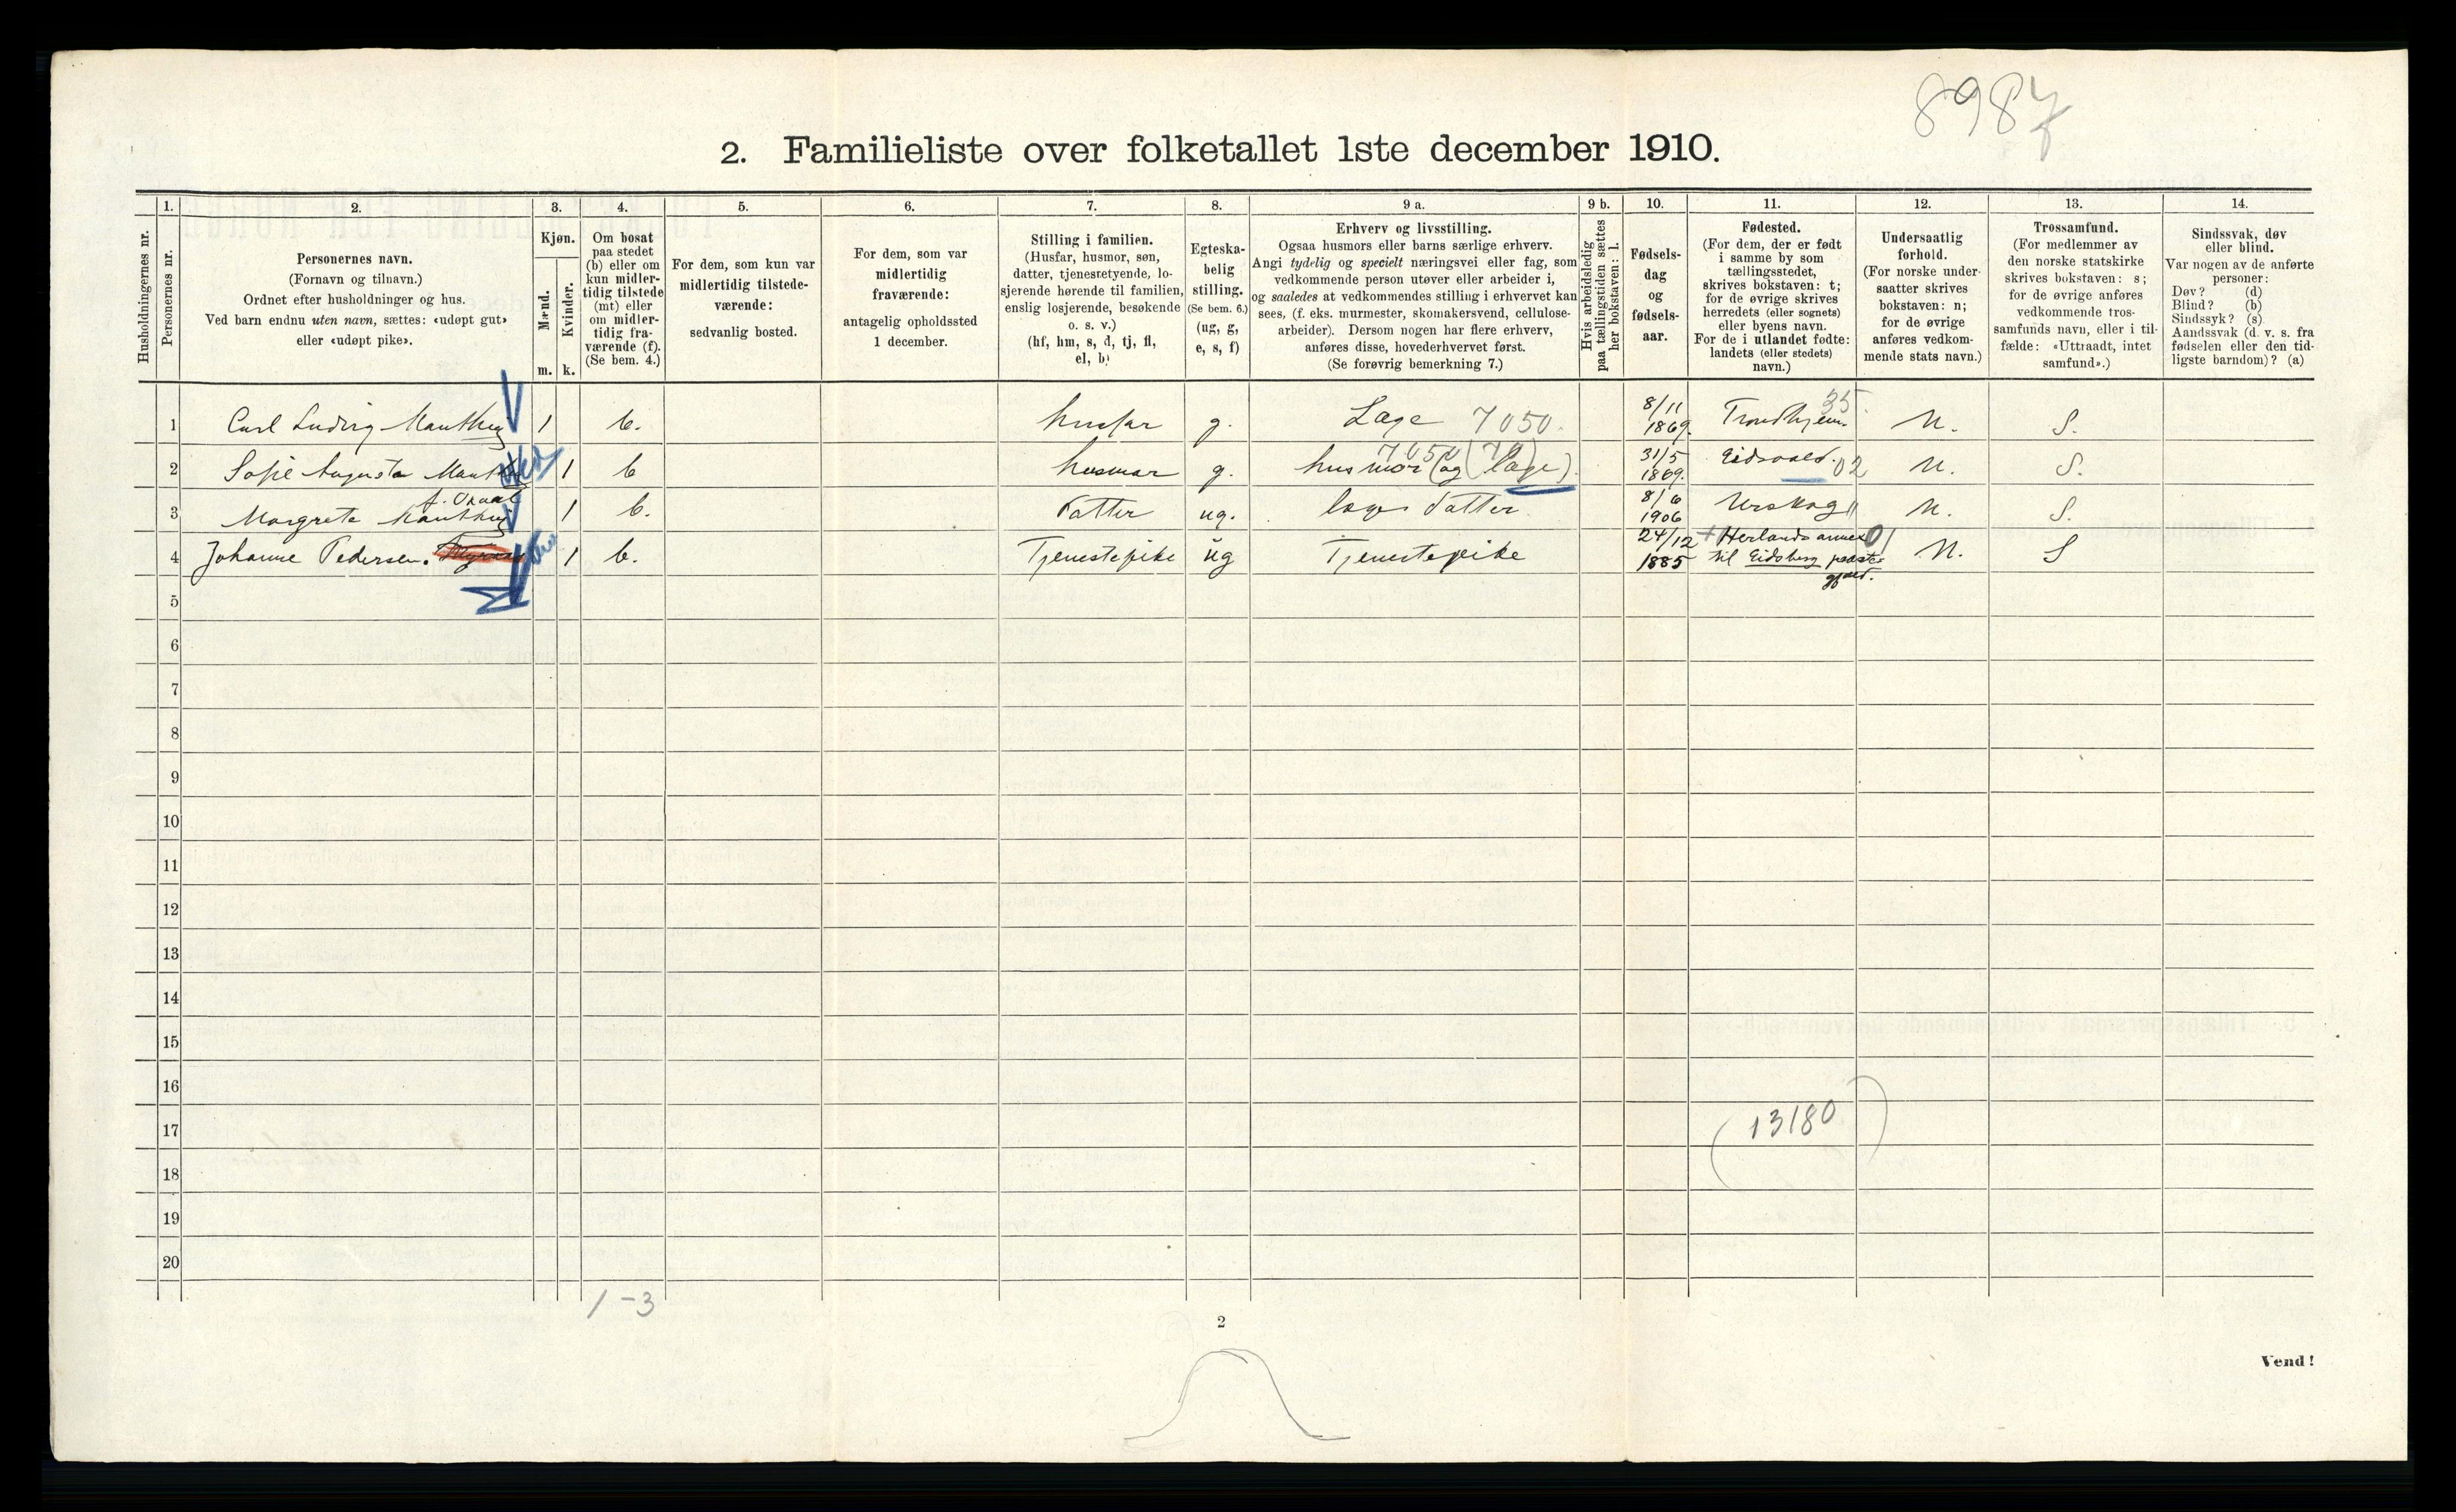 8987
2. Familieliste over folketallet 1ste december 1910.
Husholdningernes nr.
1.
Personernes nr.
2.
Personernes navn.
(Fornavn og tilnavn.)
Ordnet efter husholdninger og hus.
Ved barn endnu uten navn, sættes: «udøpt gut»
eller «udøpt pike».
3.
Kjøn.
Mænd.
m.
Kvinder.
k.
4.
Om bosat
paa stedet
(b) eller om
kun midler-
tidig tilstede
(mt) eller
om midler-
tidig fra-
værende (f).
(Se bem. 4.)
5.
For dem, som kun var
midlertidig tilstede-
værende:
sedvanlig bosted.
6.
For dem, som var
midlertidig
fraværende:
antagelig opholdssted
1 december.
7.
Stilling i familien.
(Husfar, husmor, søn,
datter, tjenestetyende, lo-
sjerende hørende til familien,
enslig losjerende, besøkende
o. s. v.)
(hf, hm, s, d, tj, fl,
el, b)
8.
Egteska-
belig
stilling.
(Se bem. 6.)
(ug, g,
e, s, f)
9 a.
Erhverv og livsstilling.
Ogsaa husmors eller barns særlige erhverv.
Angi tydelig og specielt næringsvei eller fag, som
vedkommende person utøver eller arbeider i,
og saaledes at vedkommendes stilling i erhvervet kan
sees, (f. eks. murmester, skomakersvend, cellulose-
arbeider). Dersom nogen har flere erhverv,
anføres disse, hovederhvervet først.
(Se forøvrig bemerkning 7.)
9 b.
Hvis arbeidsledig
paa tællingstiden sættes
her bokstaven: l.
10.
Fødsels-
dag
og
fødsels-
aar.
11.
Fødested.
(For dem, der er født
i samme by som
tællingsstedet,
skrives bokstaven: t;
for de øvrige skrives
herredets (eller sognets)
eller byens navn.
For de i utlandet fødte:
landets (eller stedets)
navn.)
12.
Undersaatlig
forhold.
(For norske under-
saatter skrives
bokstaven: n;
for de øvrige
anføres vedkom-
mende stats navn.)
13.
Trossamfund.
(For medlemmer av
den norske statskirke
skrives bokstaven: s;
for de øvrige anføres
vedkommende tros-
samfunds navn, eller i til-
fælde: «Uttraadt, intet
samfund».)
14.
Sindssvak, døv
eller blind.
Var nogen av de anførte
personer:
Døv? (d)
Blind? (b)
Sindssyk? (s)
Aandssvak (d. v. s. fra
fødselen eller den tid-
ligste barndom)? (a)
1 Carl Ludvig Manthey 1 b. husfar g. Læge 7050. 8/11 1869. Trondhjem. 35. N. S.
2 Sofie Augusta Manthey 1 b husmor g. husmor (og læge). 7050 31/5 1869. Eidsvold. 02 N. S.
3 Margrete Manthey 1 b. Datter ug. læges datter 8/6 1906 Urskog N. S.
4 Johanne Pedersen. 1 b. Tjenestepike ug Tjenestepike 24/12 1885 + Herlands annex 01 til Eidsberg præste gjæld. N. S
5
6
7
8
9
10
11
12
13
14
15
16
17
18
19
20
(13180)
1-3
2
Vend!